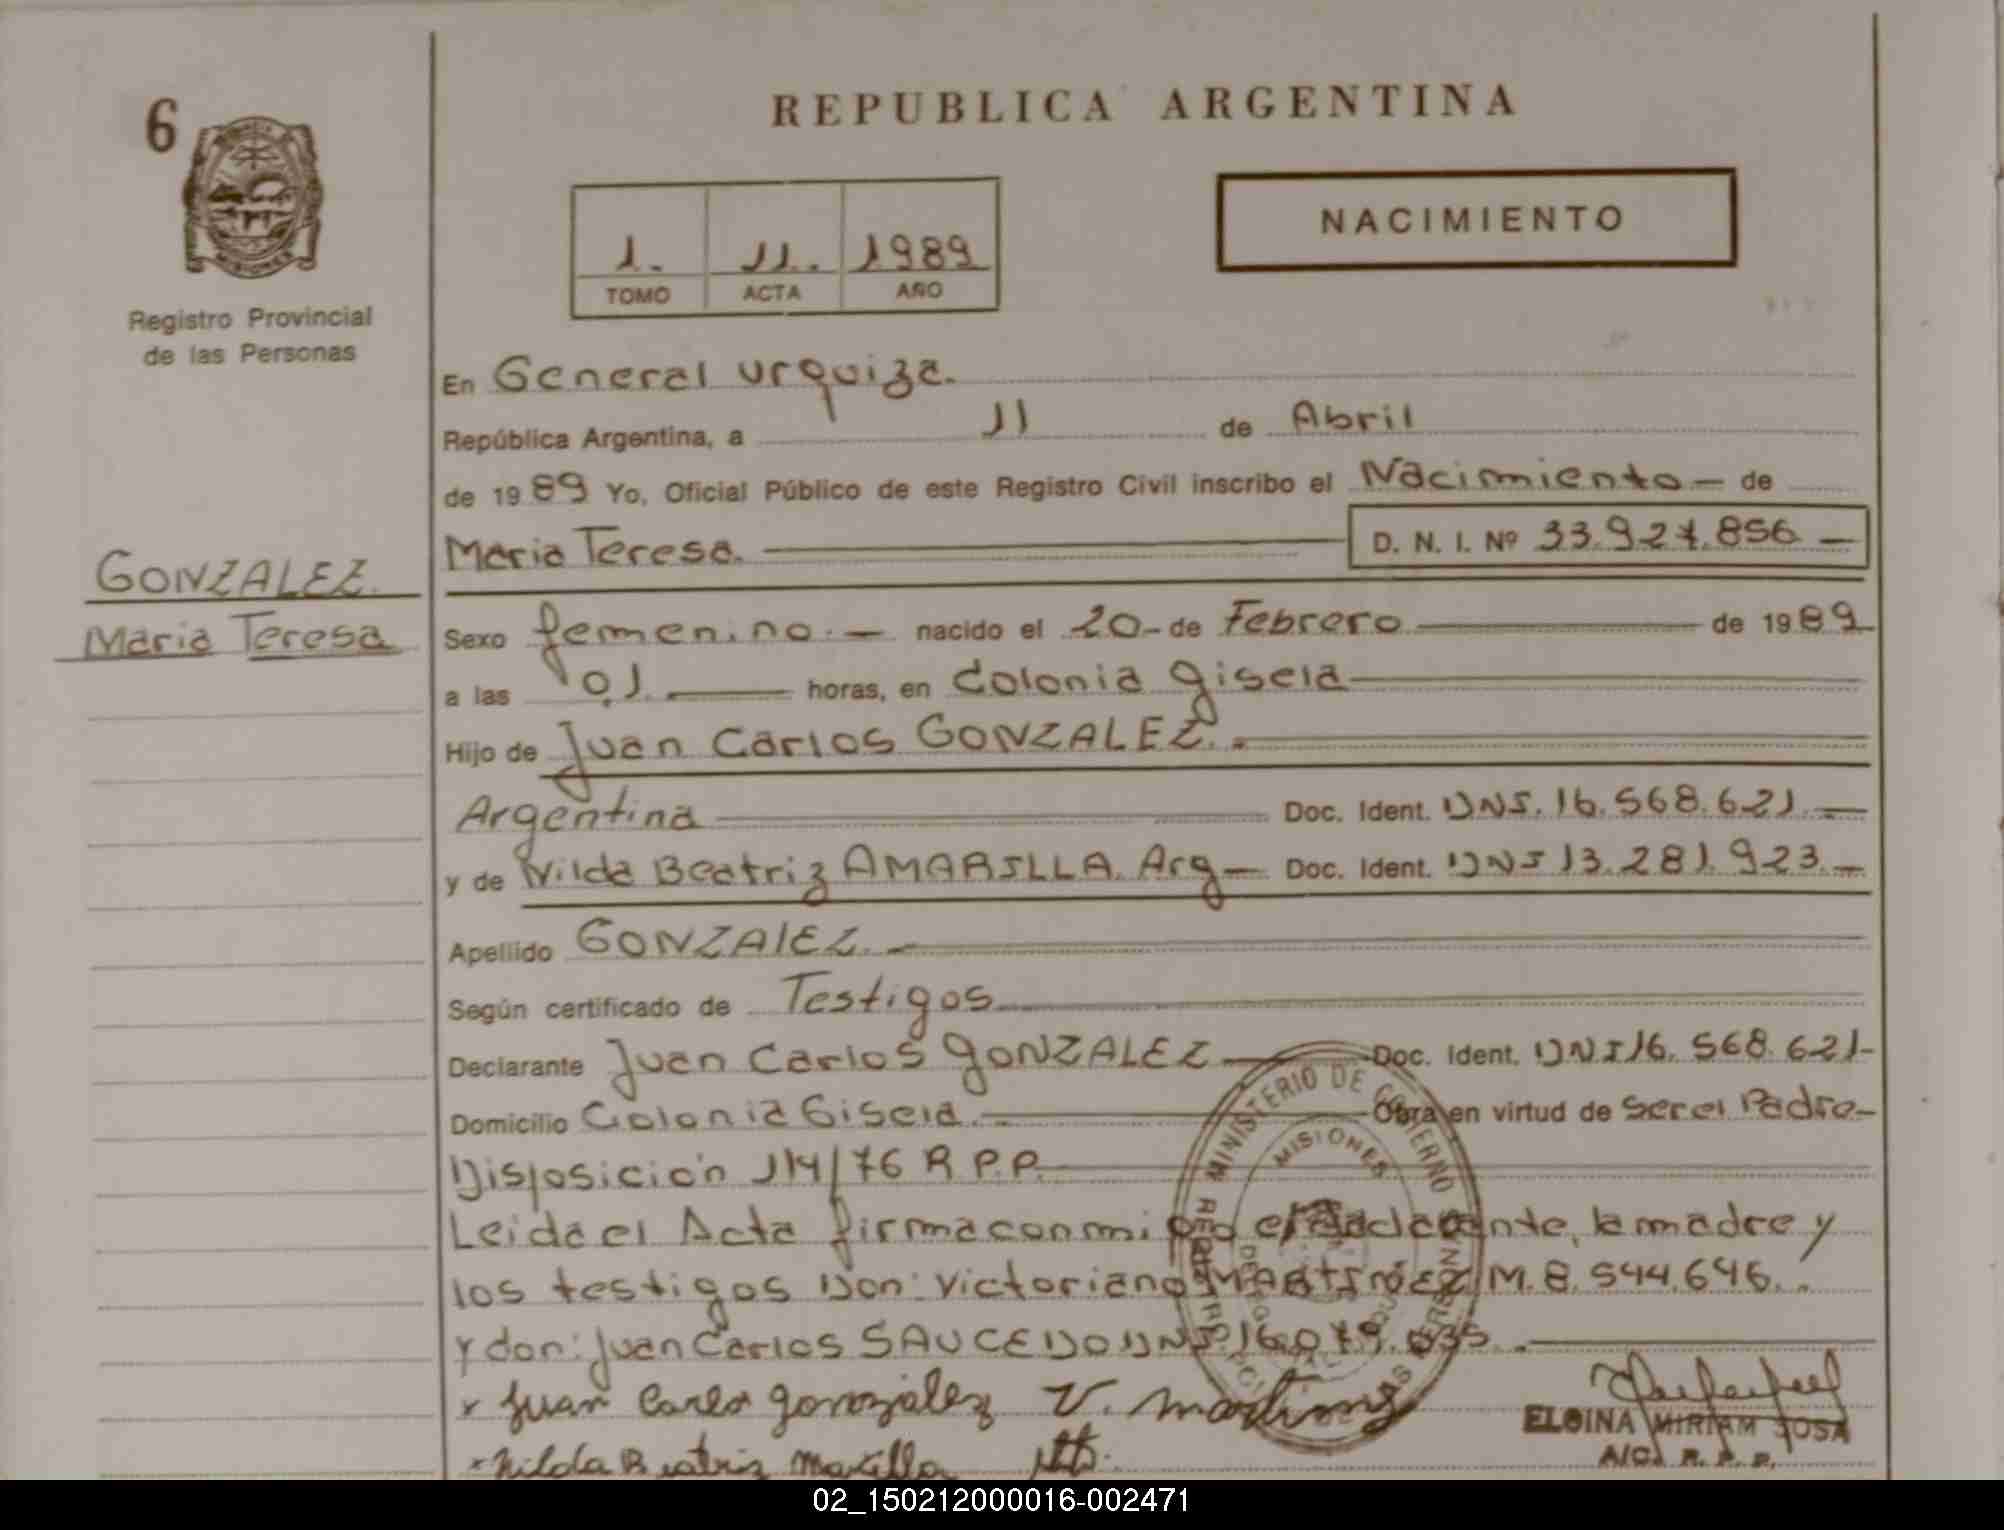 6
MISIONES
Registro Provincial
de las Personas
GONZALEZ.
Maria Teresa
REPUBLICA ARGENTINA
1. 11. 1989
TOMO ACTA AÑO
NACIMIENTO
En General Urquiza.
República Argentina, a 11 de Abril
de 1989 Yo, Oficial Público de este Registro Civil inscribo el Nacimiento — de
Maria Teresa. — D. N. I. Nº 33.927.856 —
Sexo femenino. — nacido el 20 - de Febrero — de 1989
a las 01. — horas, en Colonia Gisela —
Hijo de Juan Carlos GONZALEZ. —
Argentina — Doc. Ident. DNI. 16.568.621. —
y de Nilda Beatriz AMARILLA. Arg — Doc. Ident. DNI 13.281.923. —
Apellido GONZALEZ. —
Según certificado de Testigos —
Declarante Juan Carlos GONZALEZ — Doc. Ident. DNI 16.568.621 -
Domicilio Colonia Gisela. — Obra en virtud de ser el Padre -
Disposición 114/76 R.P.P. —
Leida el Acta firma conmigo el declarante, la madre y
los testigos Don: Victoriano MARTINEZ M. 8.544.646. .
y don: Juan Carlos SAUCEDO DNI. 16.079.035. —
x Juan Carlos gonzález V. Martinez
x Nilda Beatriz Marilla
ELOINA MIRIAM SOSA
A/C. R. P. P.
MINISTERIO DE GOBIERNO
MISIONES
02_150212000016-002471